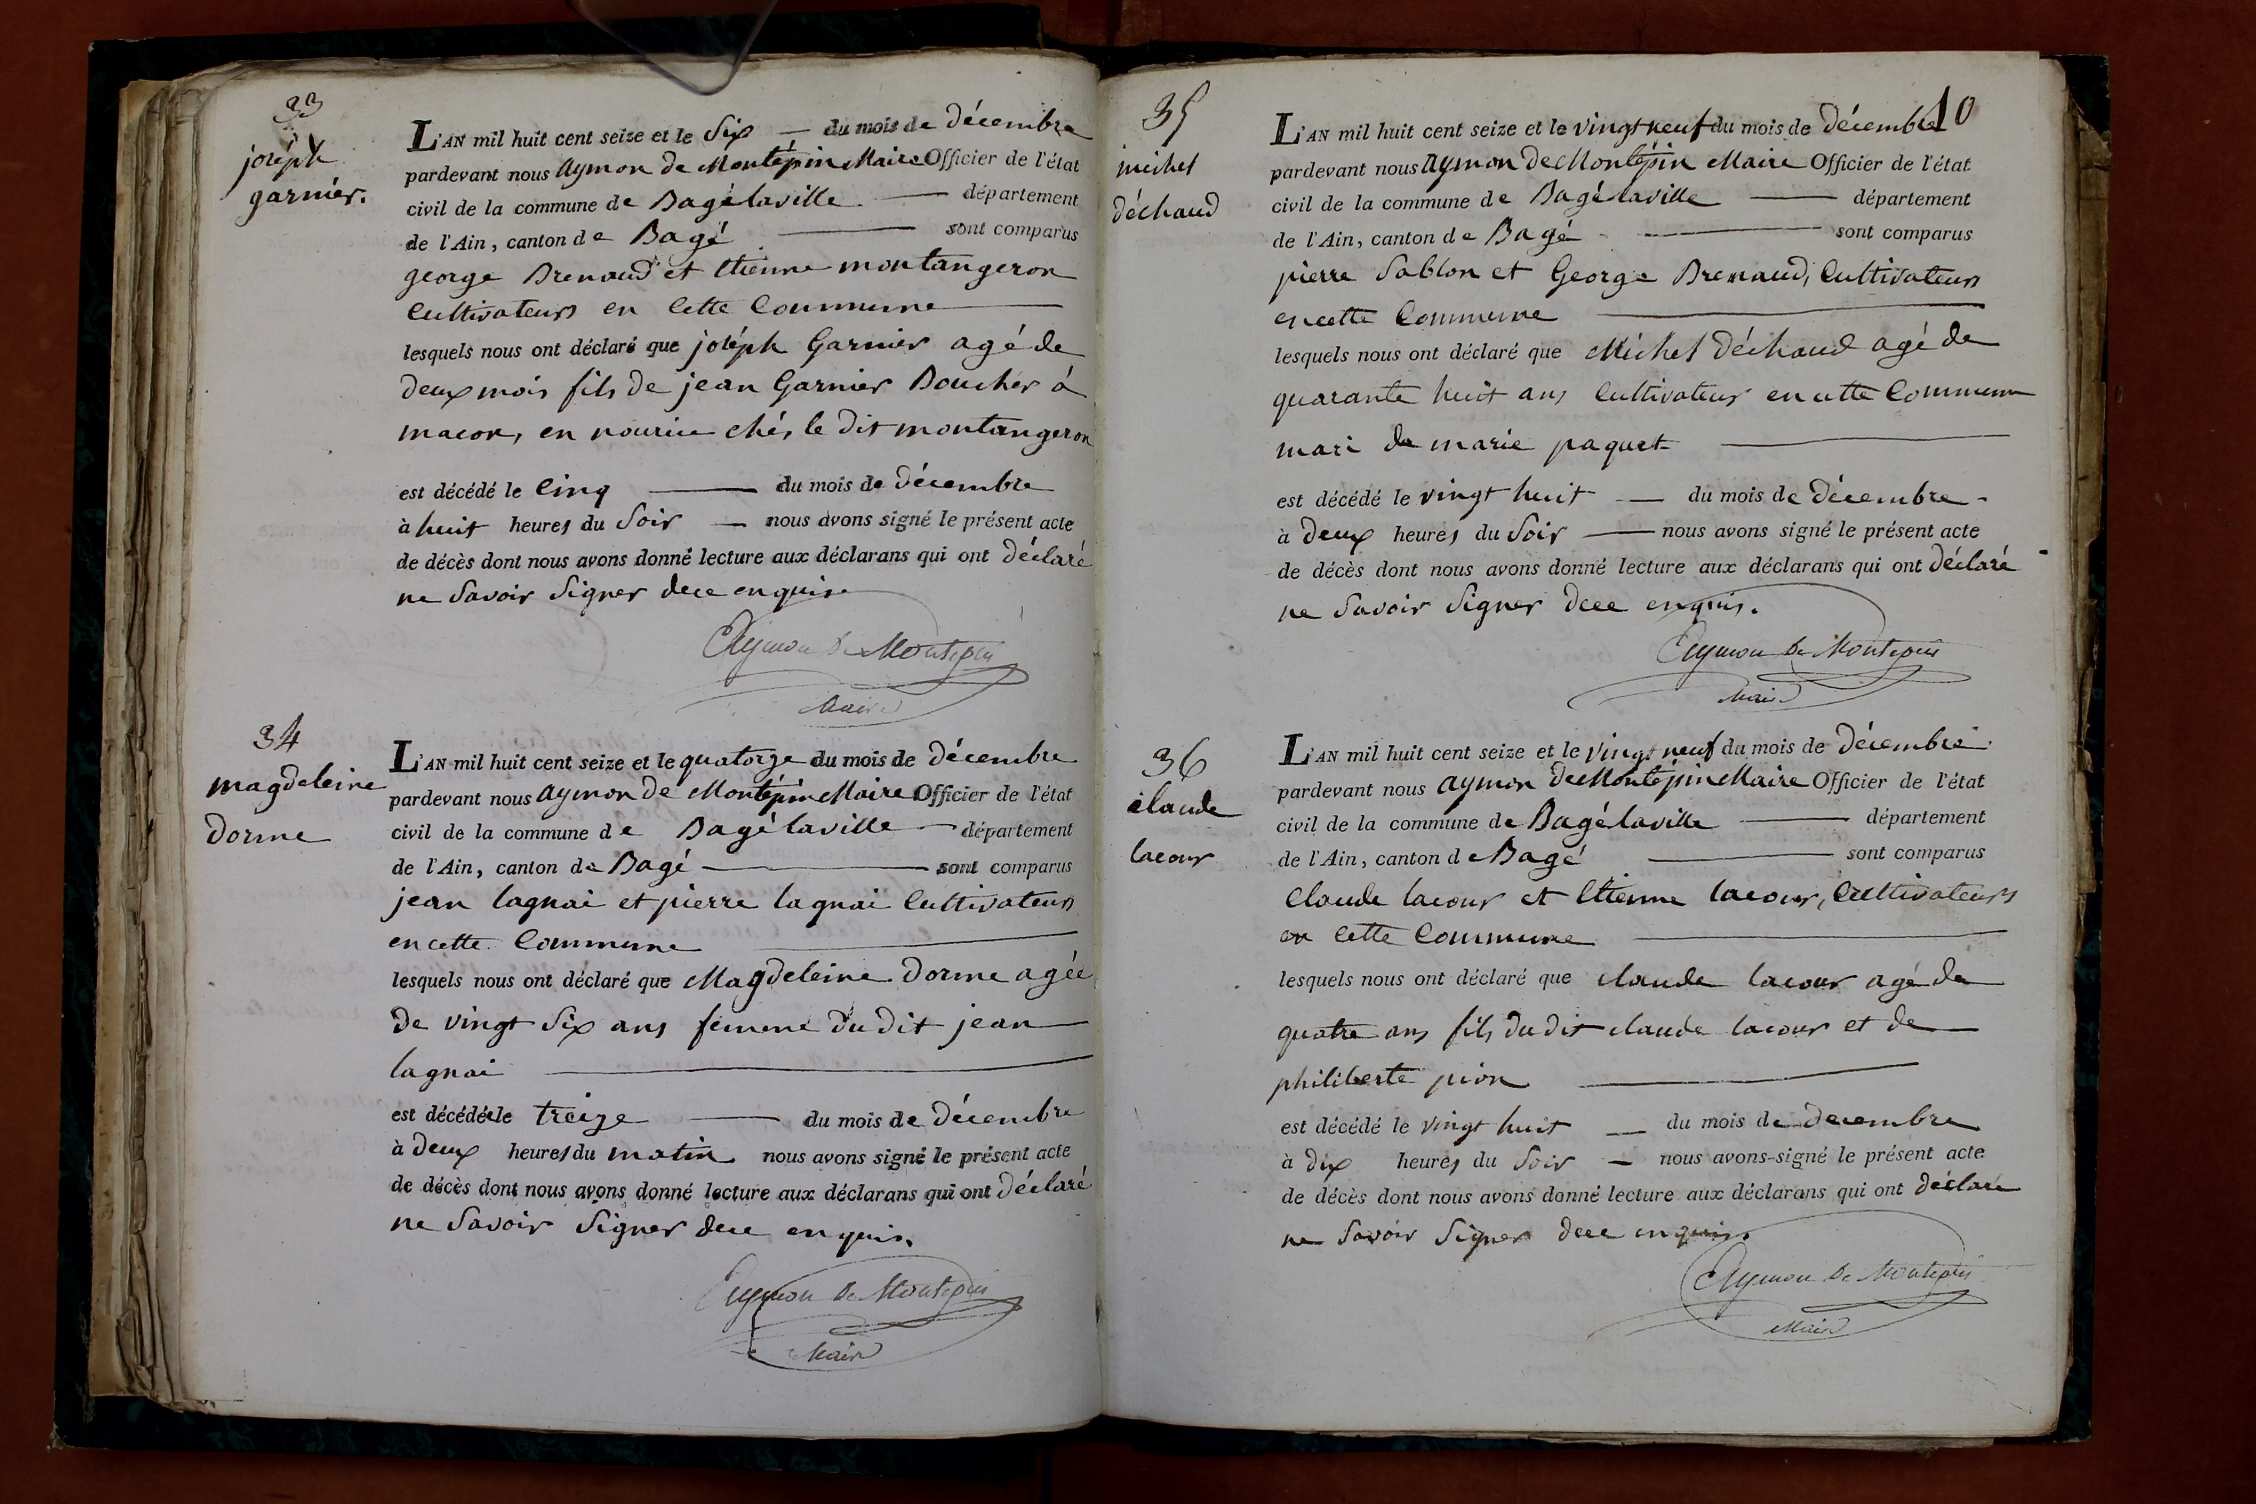 33
joséph
garnier.
L'AN mil huit cent seize et le Six — du mois de décembre
pardevant nous Aymon de Montépin Maire Officier de l'état
civil de la commune de Bagé laville — département
de l'Ain, canton de Bagé — sont comparus
george Brenaud et Etienne montangeron
Cultivateurs en Cette Commune —
lesquels nous ont déclaré que joséph Garnier agé de
deux mois fils de jean Garnier Boucher à
macon, en nourice chés le dit montangeron
est décédé le Cinq — du mois de décembre
à huit heures du Soir — nous avons signé le présent acte
de décès dont nous avons donné lecture aux déclarans qui ont déclaré
ne Savoir Signer dece enquis.
Aymon De Montepin
Maire
34
magdeleine
dorme
L'AN mil huit cent seize et le quatorze du mois de décembre
pardevant nous Aymon de Montépin Maire Officier de l'état
civil de la commune de Bagé laville — département
de l'Ain, canton de Bagé — sont comparus
jean lagnai et pierre lagnai Cultivateurs
en cette Commune —
lesquels nous ont déclaré que Magdeleine dorme agée
de vingt Six ans femme du dit jean
lagnai —
est décédée le treize — du mois de décembre
à deux heures du matin nous avons signé le présent acte
de décès dont nous avons donné lecture aux déclarans qui ont déclaré
ne Savoir Signer dece enquis.
Aymon De Montepin
Maire
10
35
michel
déchaud
L'AN mil huit cent seize et le vingt neuf du mois de décembre
pardevant nous Aymon de Montépin Maire Officier de l'état
civil de la commune de Bagé laville — département
de l'Ain, canton de Bagé — sont comparus
pierre Sablon et George Brenaud, Cultivateurs
en cette Commune —
lesquels nous ont déclaré que Michel déchaud agé de
quarante huit ans Cultivateur en cette Commune
mari de marie paquet —
est décédé le vingt huit — du mois de décembre -
à deux heures du Soir — nous avons signé le présent acte
de décès dont nous avons donné lecture aux déclarans qui ont déclaré
ne Savoir Signer dece enquis.
Aymon De Montepin
Maire
36
claude
lacour
L'AN mil huit cent seize et le vingt neuf du mois de décembre
pardevant nous Aymon de Montépin Maire Officier de l'état
civil de la commune de Bagé laville — département
de l'Ain, canton de Bagé — sont comparus
Claude lacour et Etienne lacour, Cultivateurs
en Cette Commune —
lesquels nous ont déclaré que claude lacour agé de
quatre ans fils du dit claude lacour et de
philiberte pion —
est décédé le vingt huit — du mois de decembre
à dix heures du Soir — nous avons signé le présent acte
de décès dont nous avons donné lecture aux déclarans qui ont déclaré
ne Savoir Signer dece enquis.
Aymon De Montepin
Maire